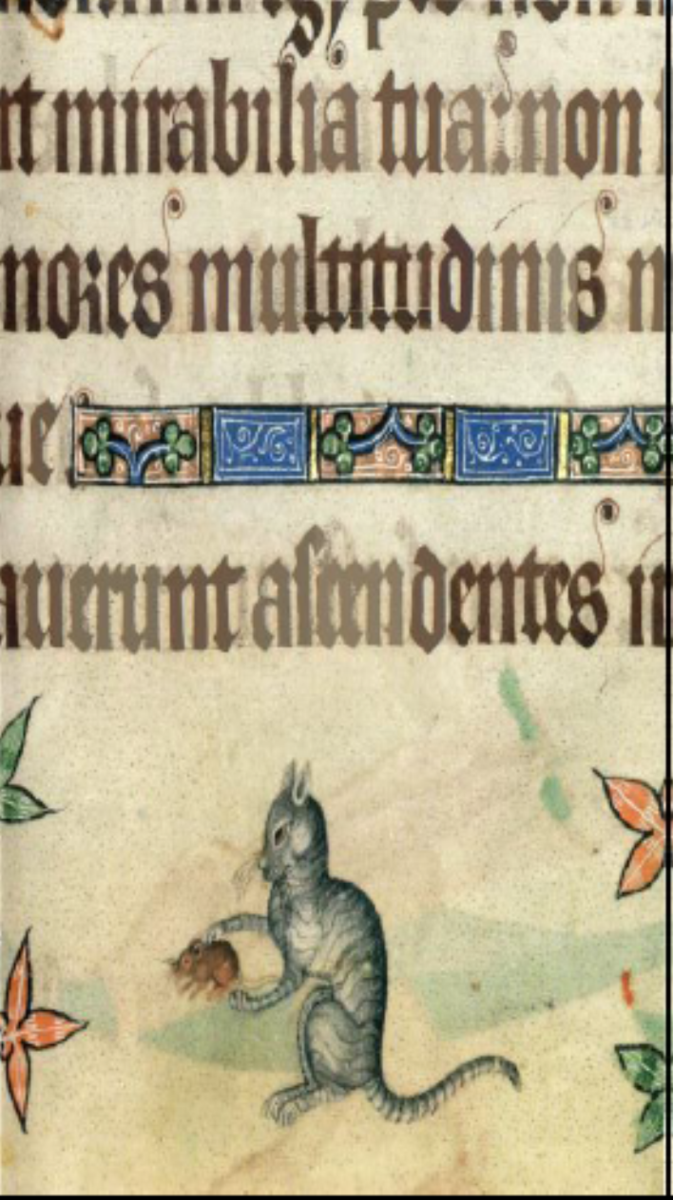 rt mirabilia tua: non
mores multitudinis n
ue
auerunt ascendentes in